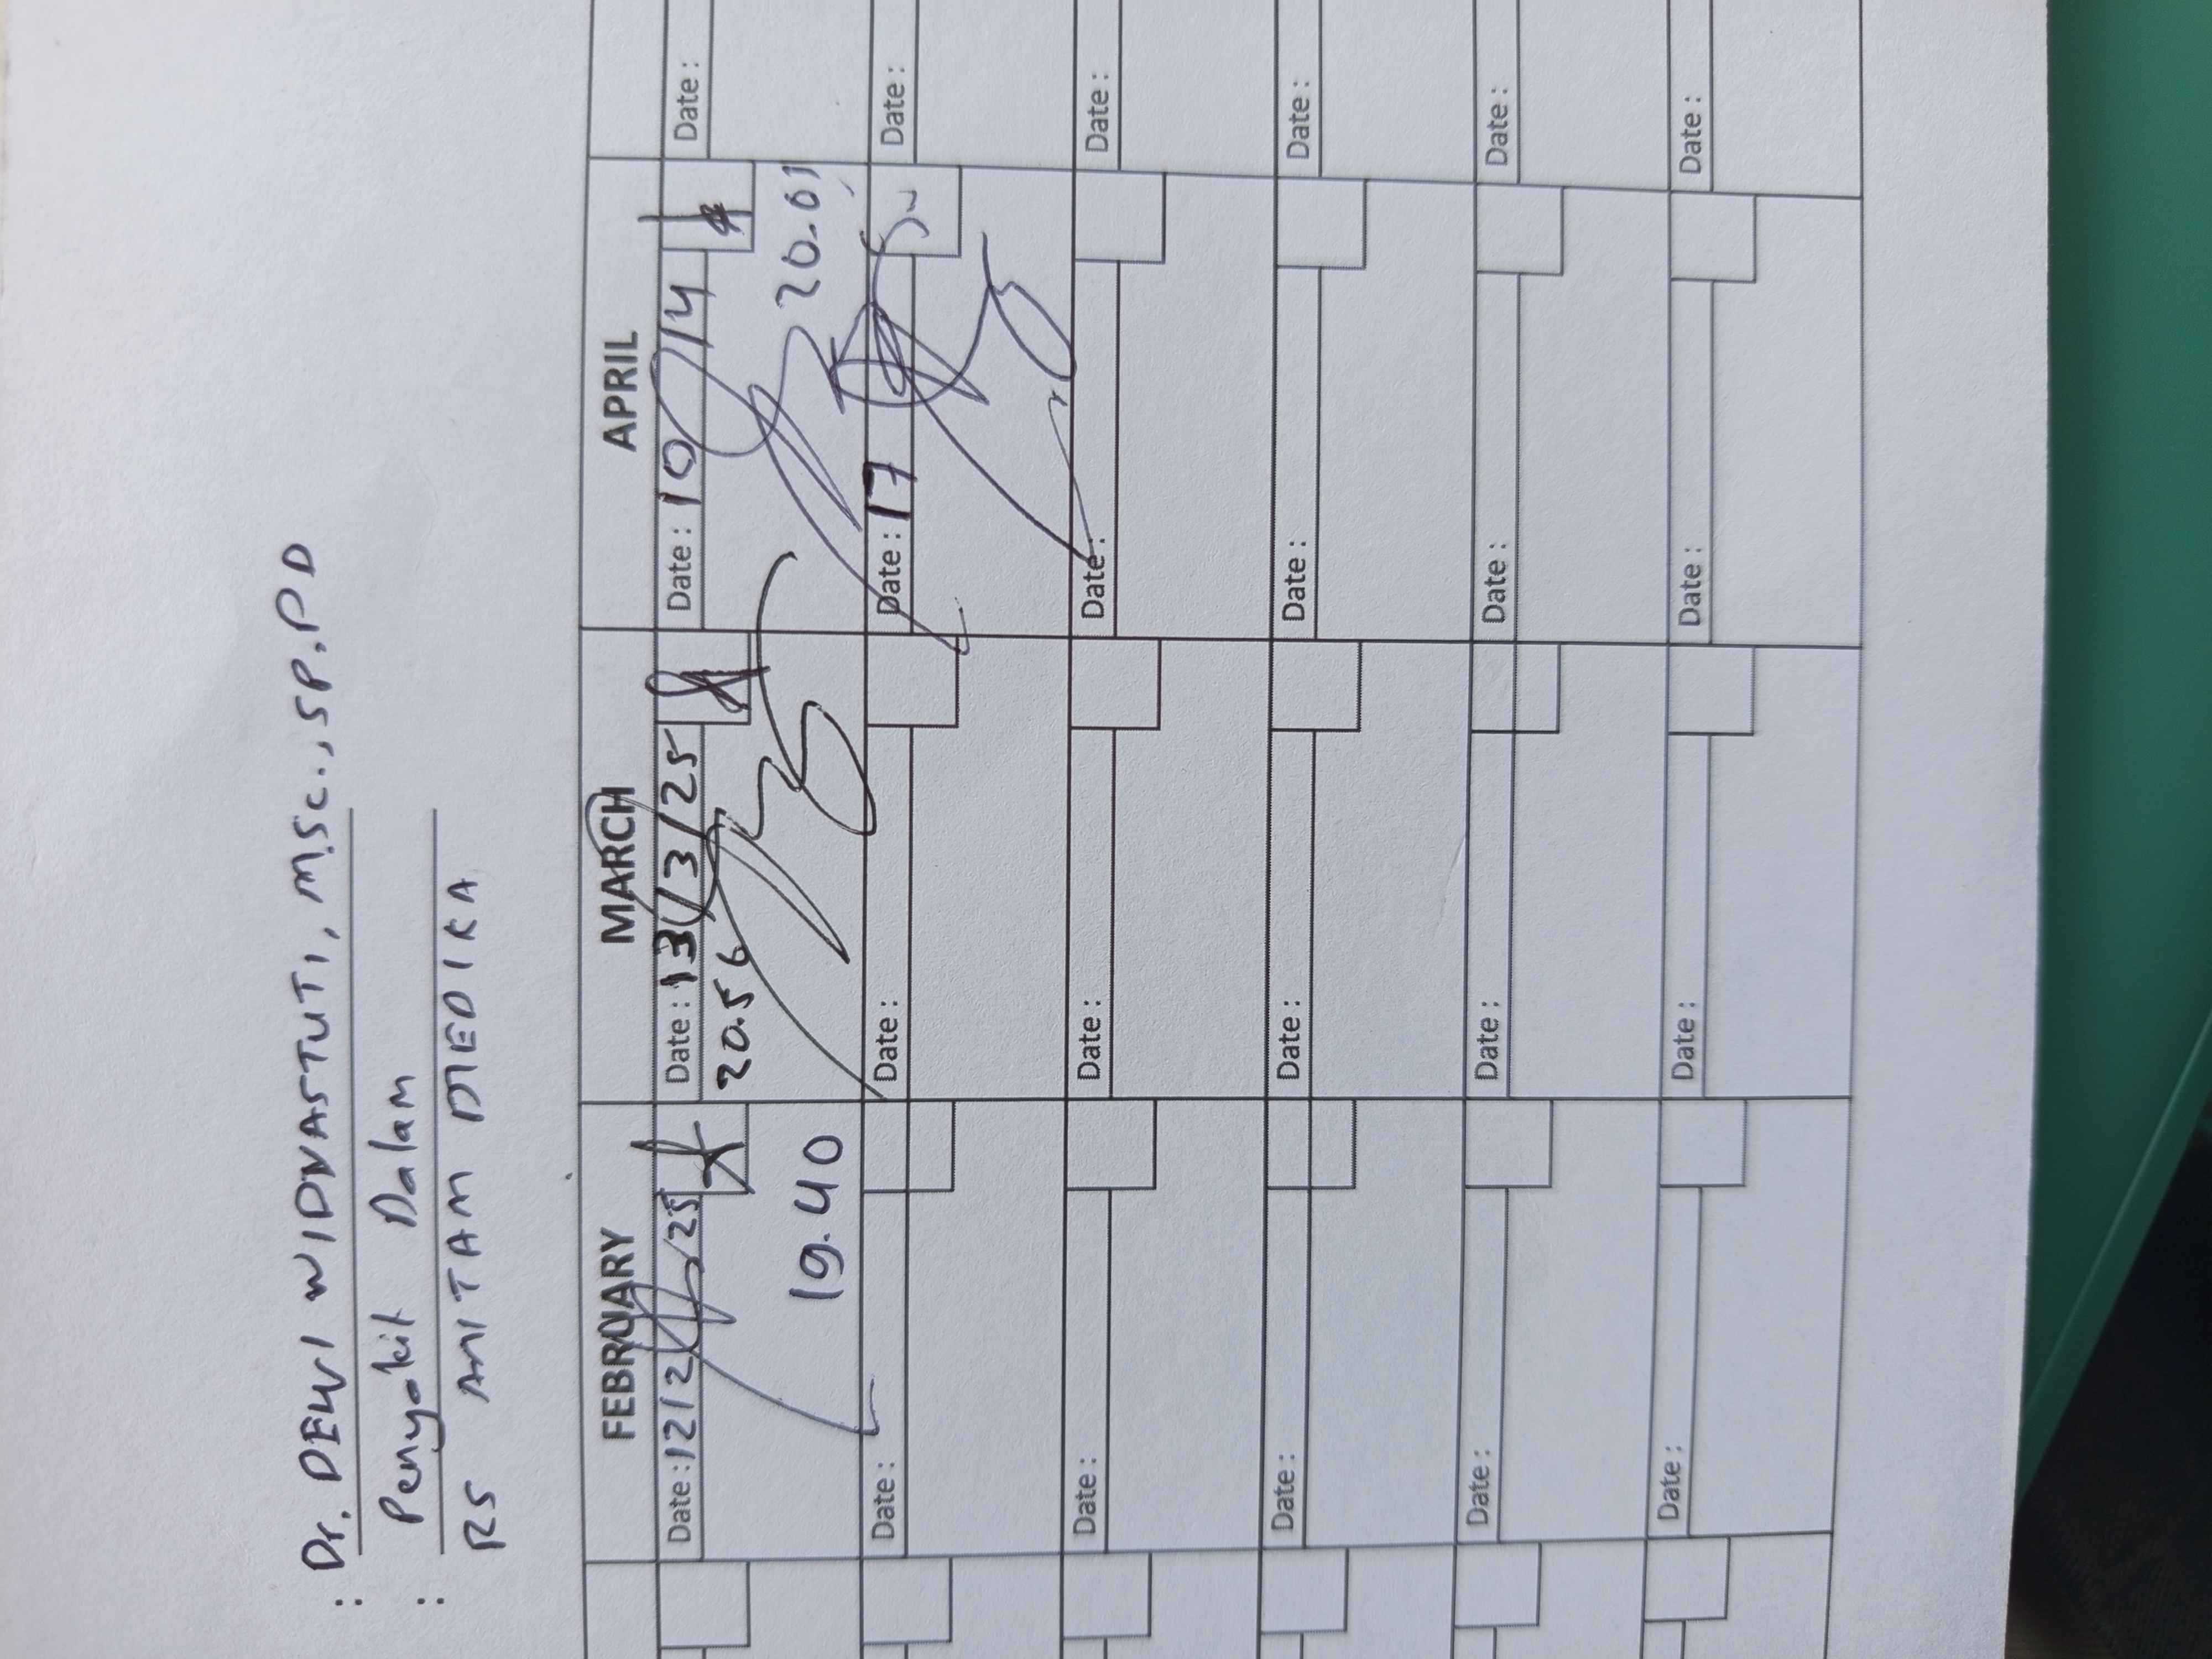 : Dr. DEWI WIDNASTUTI, M.Sc., SP.PD
: Penyakit Dalam
RS MITAM MEDIKA
FEBRUARY MARCH APRIL
Date : 12/2/25 Date : 13/3/25 Date : 10/4 Date :
19.40 20.56 20.01
Date : Date : Date : 17 Date :
Date : Date : Date : Date :
Date : Date : Date : Date :
Date : Date : Date : Date :
Date : Date : Date : Date :